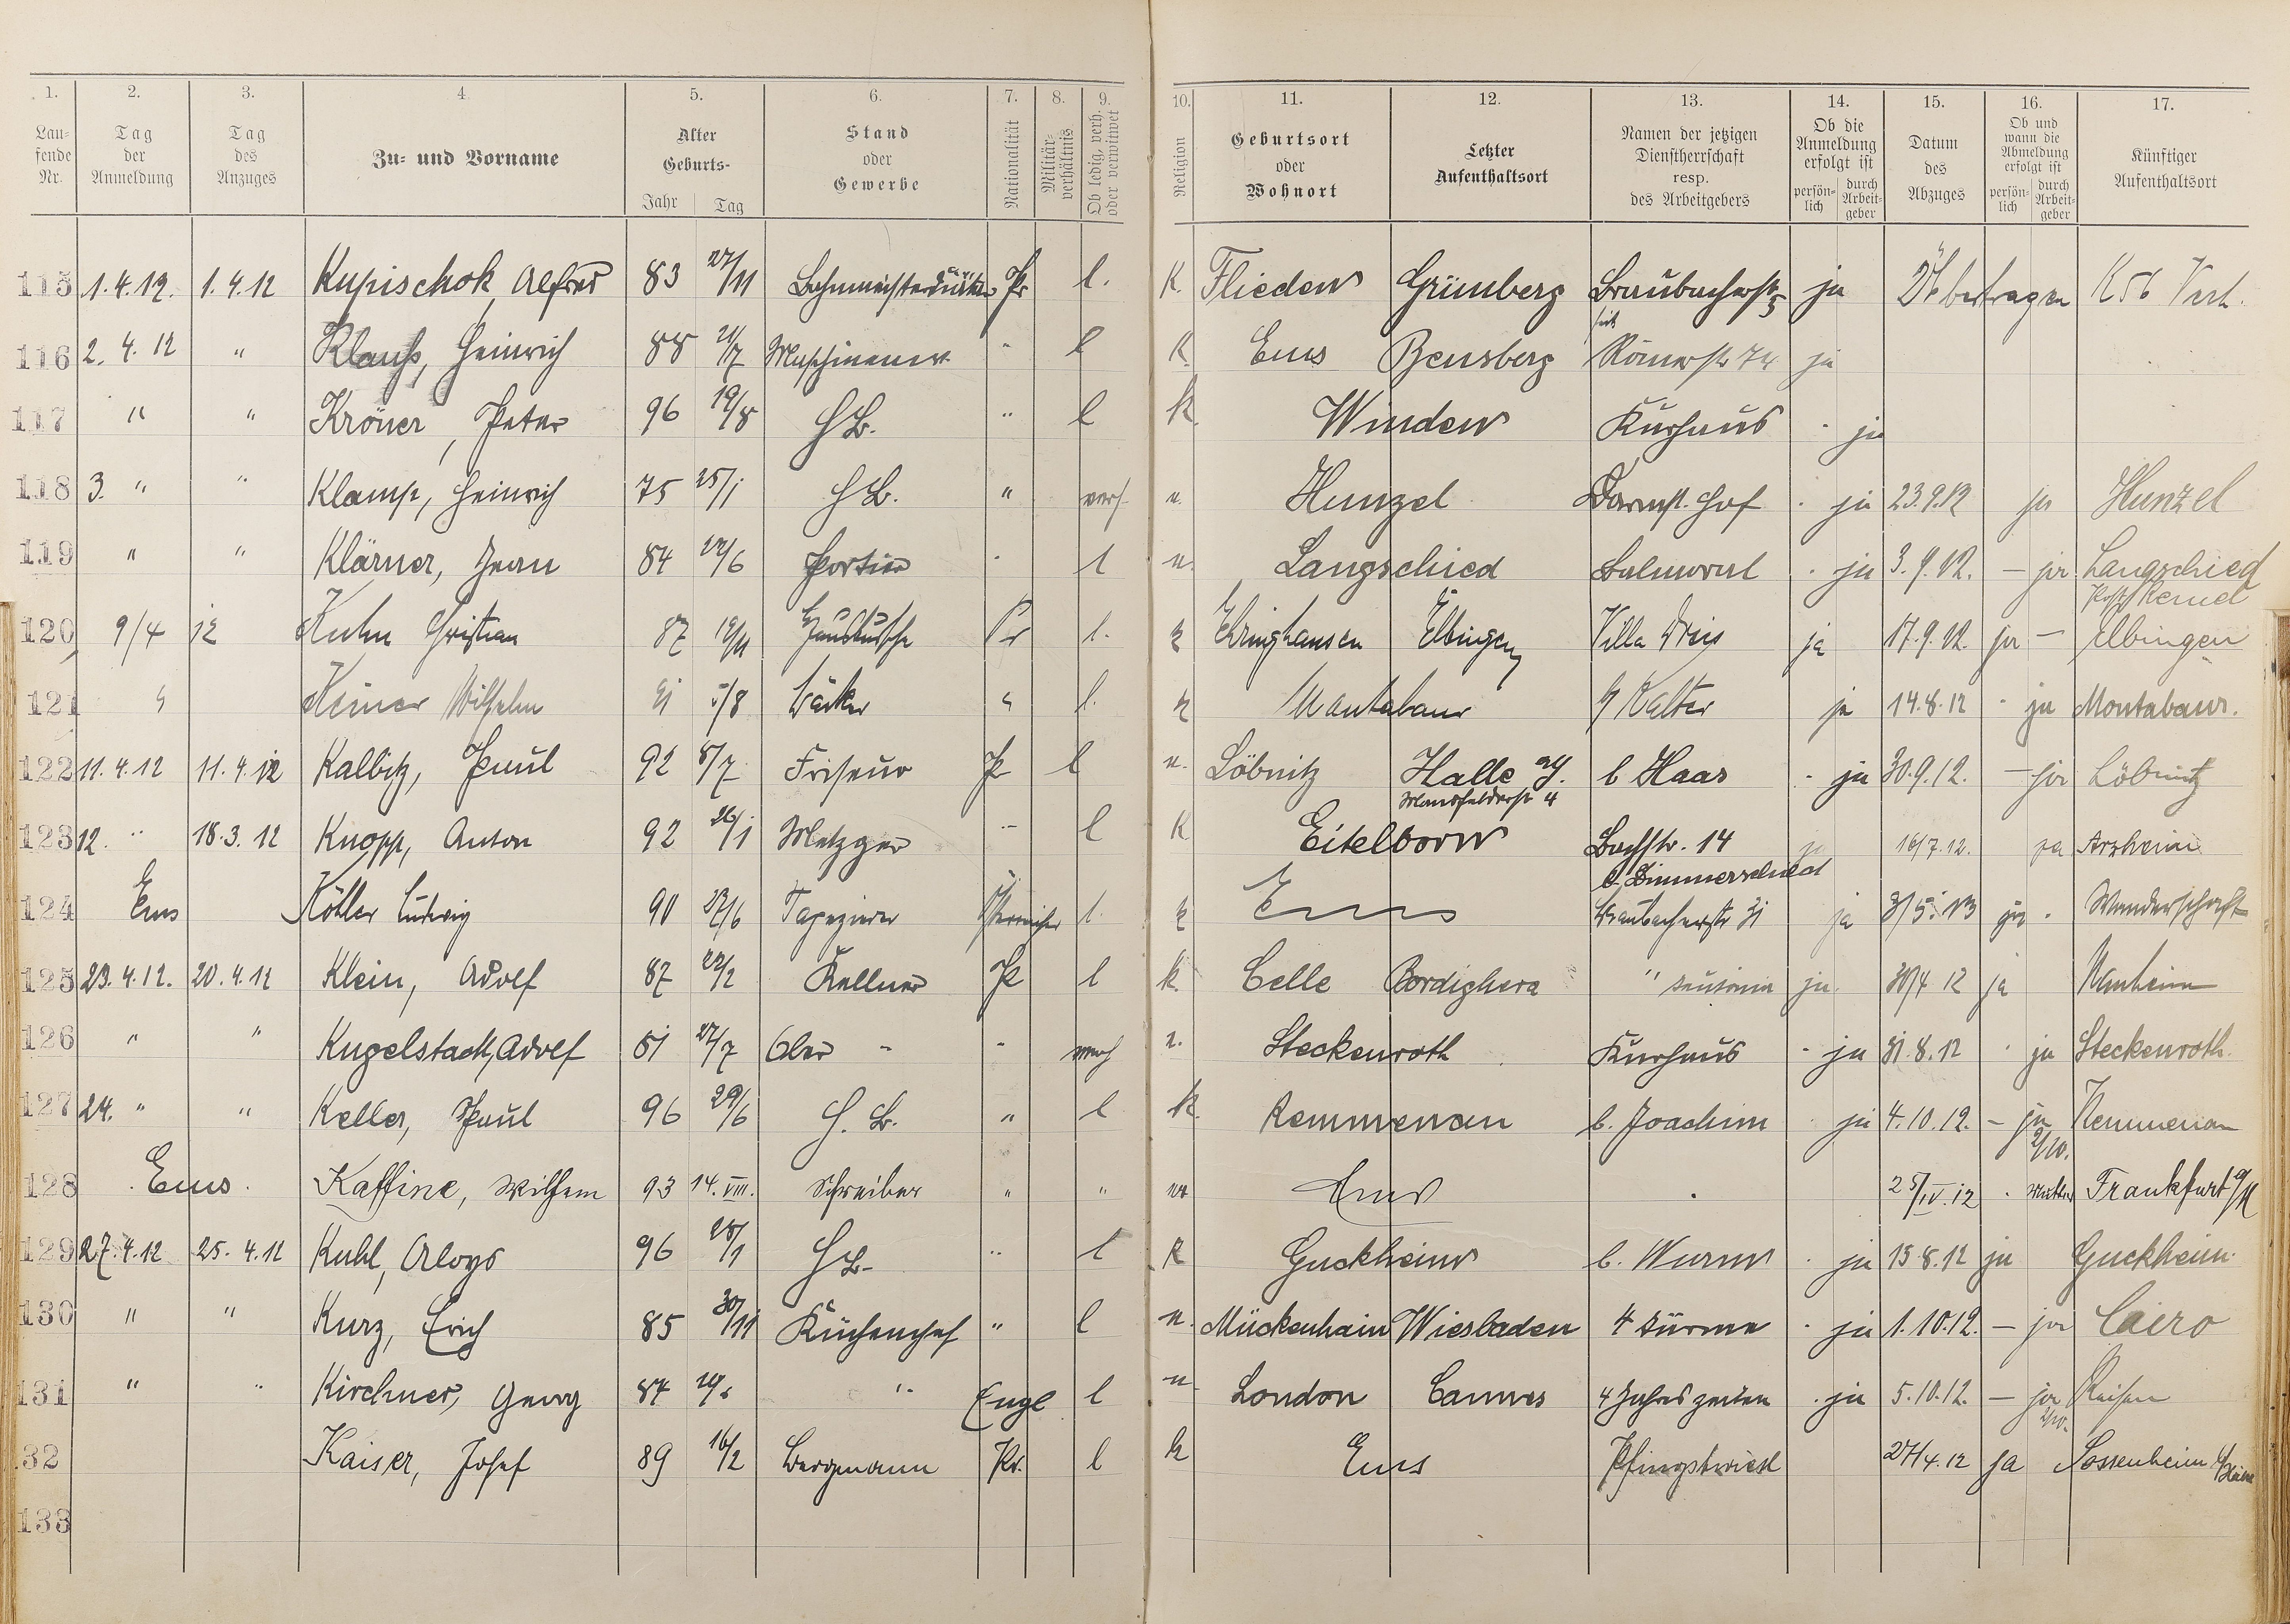 1. 2. 3. 4. 5. 6. 7. 8. 9. 10. 11. 12. 13. 14. 15. 16. 17.
Lau-
fende
Nr.
Tag
der
Anmeldung
Tag
des
Anzuges
Zu- und Vorname
Alter
Geburts-
Jahr Tag
Stand
oder
Gewerbe
Nationalität
Militär-
verhältnis
Ob ledig, verh.
oder verwitwet
Religion
Geburtsort
oder
Wohnort
Letzter
Aufenthaltsort
Namen der jetzigen
Dienstherrschaft
resp.
des Arbeitgebers
Ob die
Anmeldung
erfolgt ist
persön-
lich
durch
Arbeit-
geber
Datum
des
Abzuges
Ob und
wann die
Abmeldung
erfolgt ist
persön-
lich
durch
Arbeit-
geber
Künftiger
Aufenthaltsort
115 1.4.12. 1.4.12 Kupischok Alfred 83 27/11 Pr l. K Flieden Grünberg Braubacherstr ja Übertragen
116 2. 4. 12 " Klauß, Heinrich 88 21/7 " l K Ems Bensberg Römerstr 74 ja
117 " " Kröner, Peter 96 19/8 HB. " l K Winden Kurhaus - ja
118 3. " " Klamp, Heinrich 75 25/1 HB. " verh. Hunzel Darmst. Hof - ja 23.9.12 ja Hunzel
119 " " Klärner, Jean 84 12/6 Portier - l Langschied Balmoral - ja 3.9.12. - ja Langschied
Post Kemel
120 9/4 12 Kuhn Christian 87 Hausbursche Pr l. Elbingen Villa ja 17.9.12. ja - Elbingen
121 " Keiner Wilhelm 5/8 Bäcker " l. Montabaur ja 14.8.12 - ja Montabaur.
122 11.4.12 11.4.12 Kalbitz, Paul 92 8/7 Friseur Pr l Löbnitz Halle a/S. b Haas - ja 30.9.12. - ja Löbnitz
Mansfelderstr 4
123 12. " 18.3.12 Knopp, Anton 92 26/1 Metzger " l K Eitelborn Bachstr. 14 ja 16/7.12. ja Arzheim
b. Zimmerschied
124 Ems Köhler Ludwig 90 27/6 Tapezierer Österreicher l. Ems Braubacherstr 31 ja 31/5.13 ja - Wanderschaft
125 23.4.12. 20.4.12 Klein, Adolf 87 22/2 Kellner Pr l K Celle Bordighera ja 30/4 12 ja
126 " " Kugelstadt, Adolf 81 27/7 Ober " - verh Steckenroth Kurhaus - ja 31.8.12 - ja Steckenroth.
127 24. " " Keller, Paul 96 29/6 H. B. " l K Kemmenau b. Joachim ja 4.10.12. - ja Kemmenau
2/10.
128 Ems. Kaffine, Wilhelm 93 14.VIII. Schreiber " " Ems - 25/IV.12 - Mutter Frankfurt a/M
129 27.4.12 25.4.12 Kuhl, Aloys 96 28/1 HB. " l K Guckheim b. Wurm - ja 15.8.12 ja Guckheim.
130 " " Kurz, Erich 85 30/11 Küchenchef " l Mückenhain Wiesbaden 4 Türme - ja 1.10.12. - ja Cairo
131 " " Kirchner, Georg 84 " Engl l London Cannes 4 Jahreszeiten - ja 5.10.12. - ja Reisen
2/10.
132 Kaiser, Josef 89 16/2 Bergmann Pr. l k Ems Pfingstwiese 27/4.12 ja Sossenheim
133